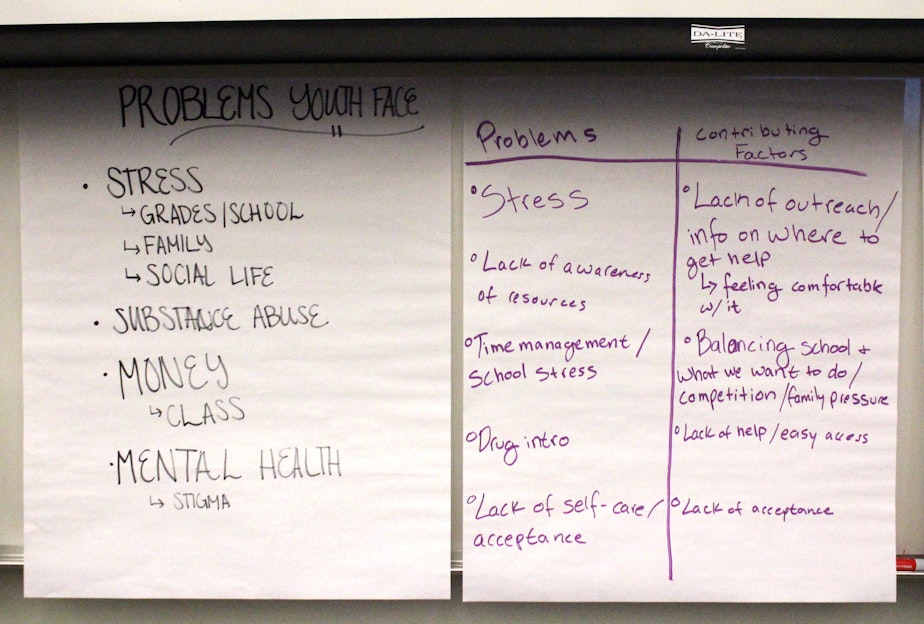 DA-LITE
PROBLEMS YOUTH FACE
• STRESS
↳ GRADES/SCHOOL
↳ FAMILY
↳ SOCIAL LIFE
• SUBSTANCE ABUSE
• MONEY
↳ CLASS
• MENTAL HEALTH
↳ STIGMA
Problems
Contributing
Factors
° Stress
° Lack of outreach/
info on where to
get help
↳ feeling comfortable
w/it
° Lack of awareness
of resources
° Time management /
school stress
° Balancing school +
what we want to do/
competition/family pressure
° Drug intro
° Lack of help/easy access
° Lack of self-care/
acceptance
° Lack of acceptance